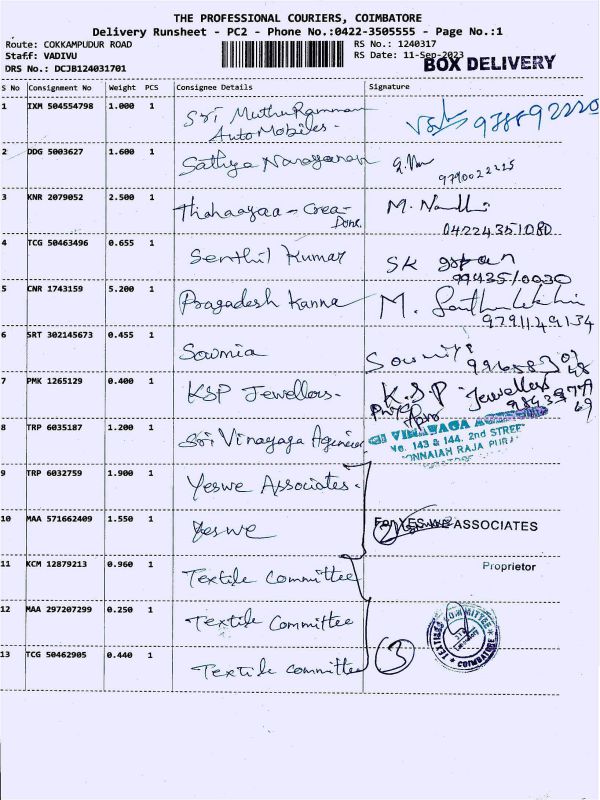 THE PROFESSIONAL COURIERS, COIMBATORE
Delivery Runsheet - PC2 - Phone No.:0422-3505555 - Page No.:1
Route: COKKAMPUDUR ROAD
Staff: VADIVU
DRS No.: DCJB124031701
RS No.: 1240317
RS Date: 11-Sep-2023
BOX DELIVERY
S No Consignment No Weight PCS Consignee Details Signature
1 IXM 504554798 1.000 1 Sri Muthu Ramman
AutoMobiles.
2 DDG 5003627 1.600 1 Sathya Narayanan
9790022225
3 KNR 2079052 2.500 1 Thahaayaa - Crea- M. Nandhi
04224351080
4 TCG 50463496 0.655 1 Senthil Kumar SK
9943510030
5 CNR 1743159 5.200 1 Pragadesh Kanna M.
9791149134
6 SRT 302145673 0.455 1 Sowmia
7 PMK 1265129 0.400 1 KSP Jewellers. K.S.P Jewellers
8 TRP 6035187 1.200 1 Sri Vinayaga Agencies
VINAYAGA
No. 143 & 144, 2nd STREET
RAJA PURA
9 TRP 6032759 1.900 1 Yeswe Associates.
10 MAA 571662409 1.550 1 Yeswe 2 For YES WE ASSOCIATES
Proprietor
11 KCM 12879213 0.960 1 Textile Committee
12 MAA 297207299 0.250 1 Textile Committee
13 TCG 50462905 0.440 1 Textile committee 3
TEXTILES COMMITTEE
COIMBATORE